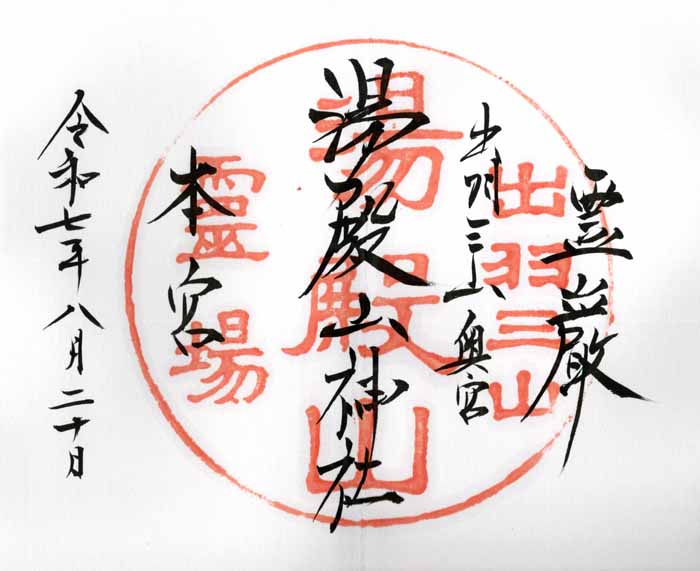 霊巌
出羽三山 奥宮
湯殿山神社
本宮
令和七年八月二十日
出羽三山
湯殿山
霊場